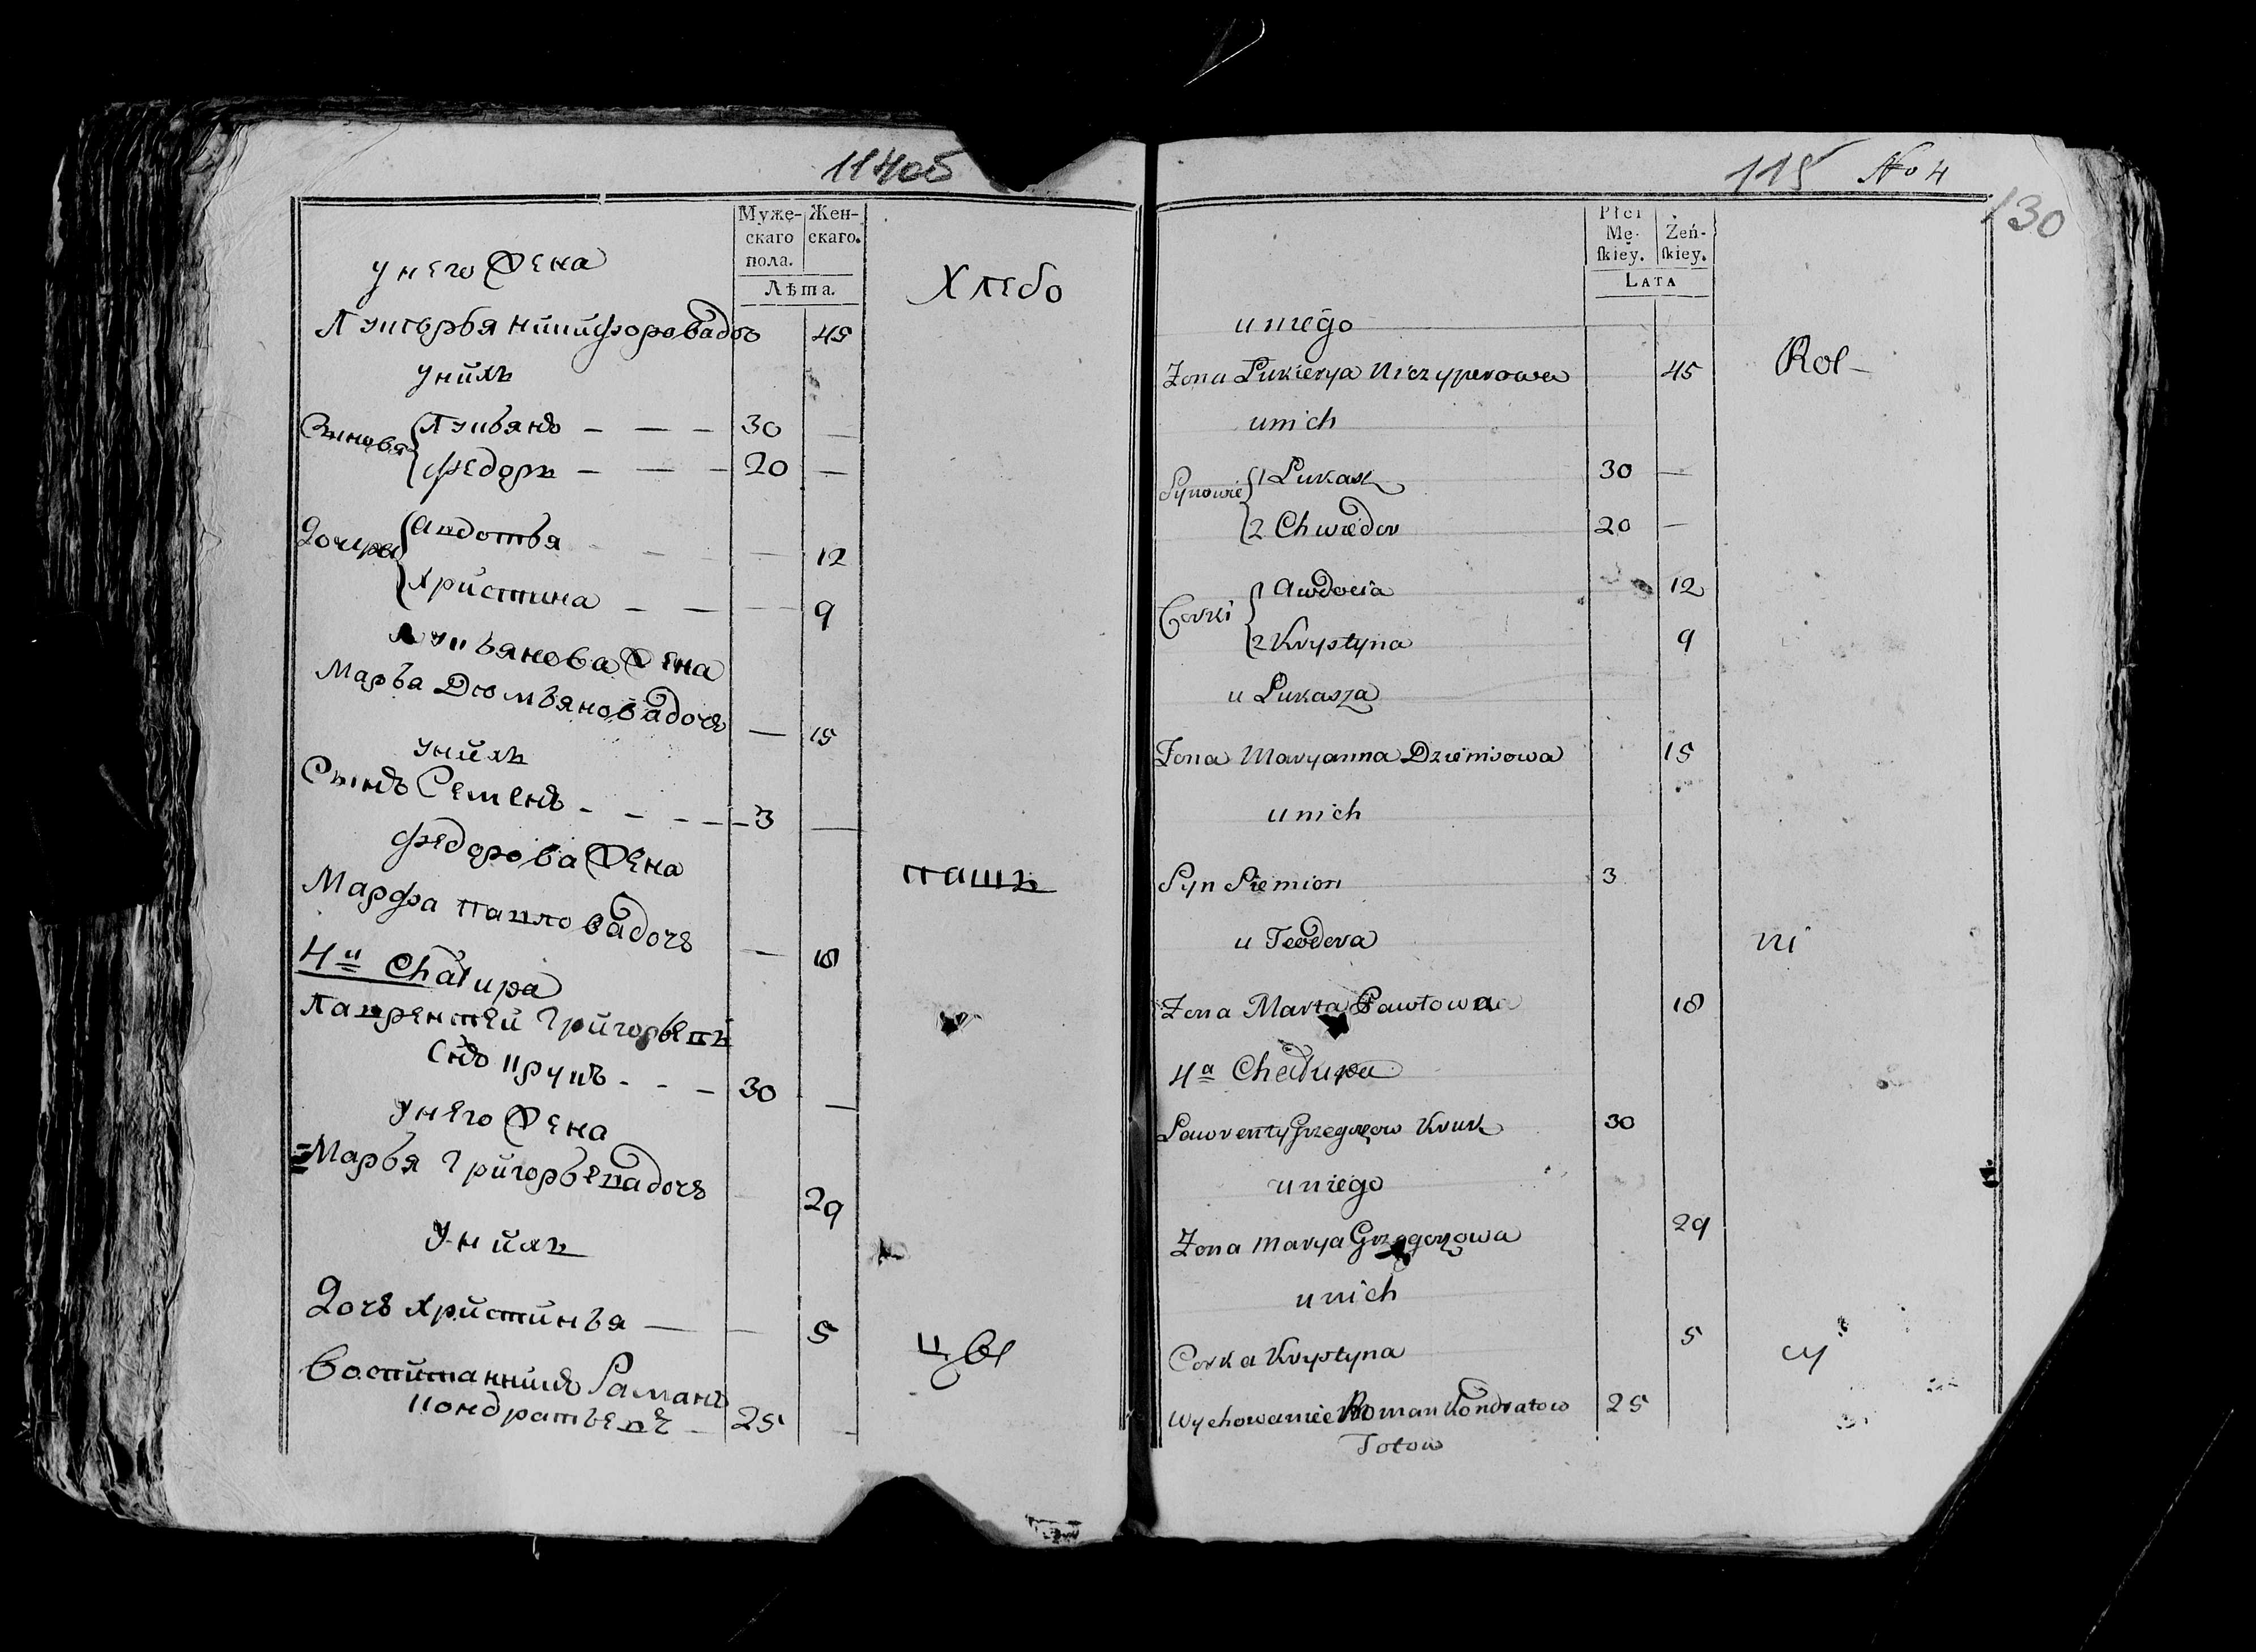 114об
Муже- Жен-
скаго скаго.
пола.
Лѣта.
у него жена
Хлебо
Лукерья Ничифоровадоч 45
у нихъ
Сыновя Лукьянъ — — — 30 —
Федоръ — — — 20 —
Дочери Авдотья — — 12
Христина — — — 9
Лукьянова жена
Марья Дюмьяновадочь — 15
у нихъ
Сынъ Семенъ - - - - - 3 —
Федорова жена
пашъ
Марфа Павловадочь — 18
4я Chałupa
Лаврентей Григорьевъ
снъ Крукъ - - - 30 —
у него жена
Марья Григорьевадочь 29
у нихъ
Дочь Христинья — — 5
цы
Воспитанникъ Раманъ
Кондратьевъ - 25 -
115 No 4
130
Płci
Mę- Żeń-
ſkiey. ſkiey.
LATA
u niego
Żona Łukierya Niczyperowa 45
Rol-
u nich
Synowie 1 Łukasz 30 —
2 Chwiedor 20 —
Corki 1 Awdocia 12
2 Krystyna 9
u Łukasza
Żona Maryanna Dziemisowa 15
u nich
Syn Siemion 3
u Teodora
ni
Żona Marta Pawłowa 18
4a Chałupa
Ławrenty Grzegorzow Kruk 30
u niego
Żona Marya Grzegorzowa 29
u nich
Corka Krystyna 5
cy
Wychowaniec Roman Kondratow 25